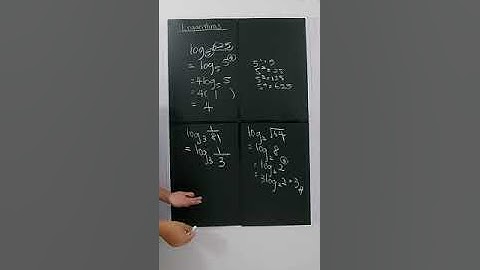 Logarithms
log₅ 625
= log₅ 5⁴
= 4log₅ 5
= 4(1)
= 4
5¹=5
5²=25
5³=125
5⁴=625
log₃ 1/81
= log₃ 1/3
log₂ √64
= log₂ 8
= log₂ 2³
= 3log₂ 2 = 3